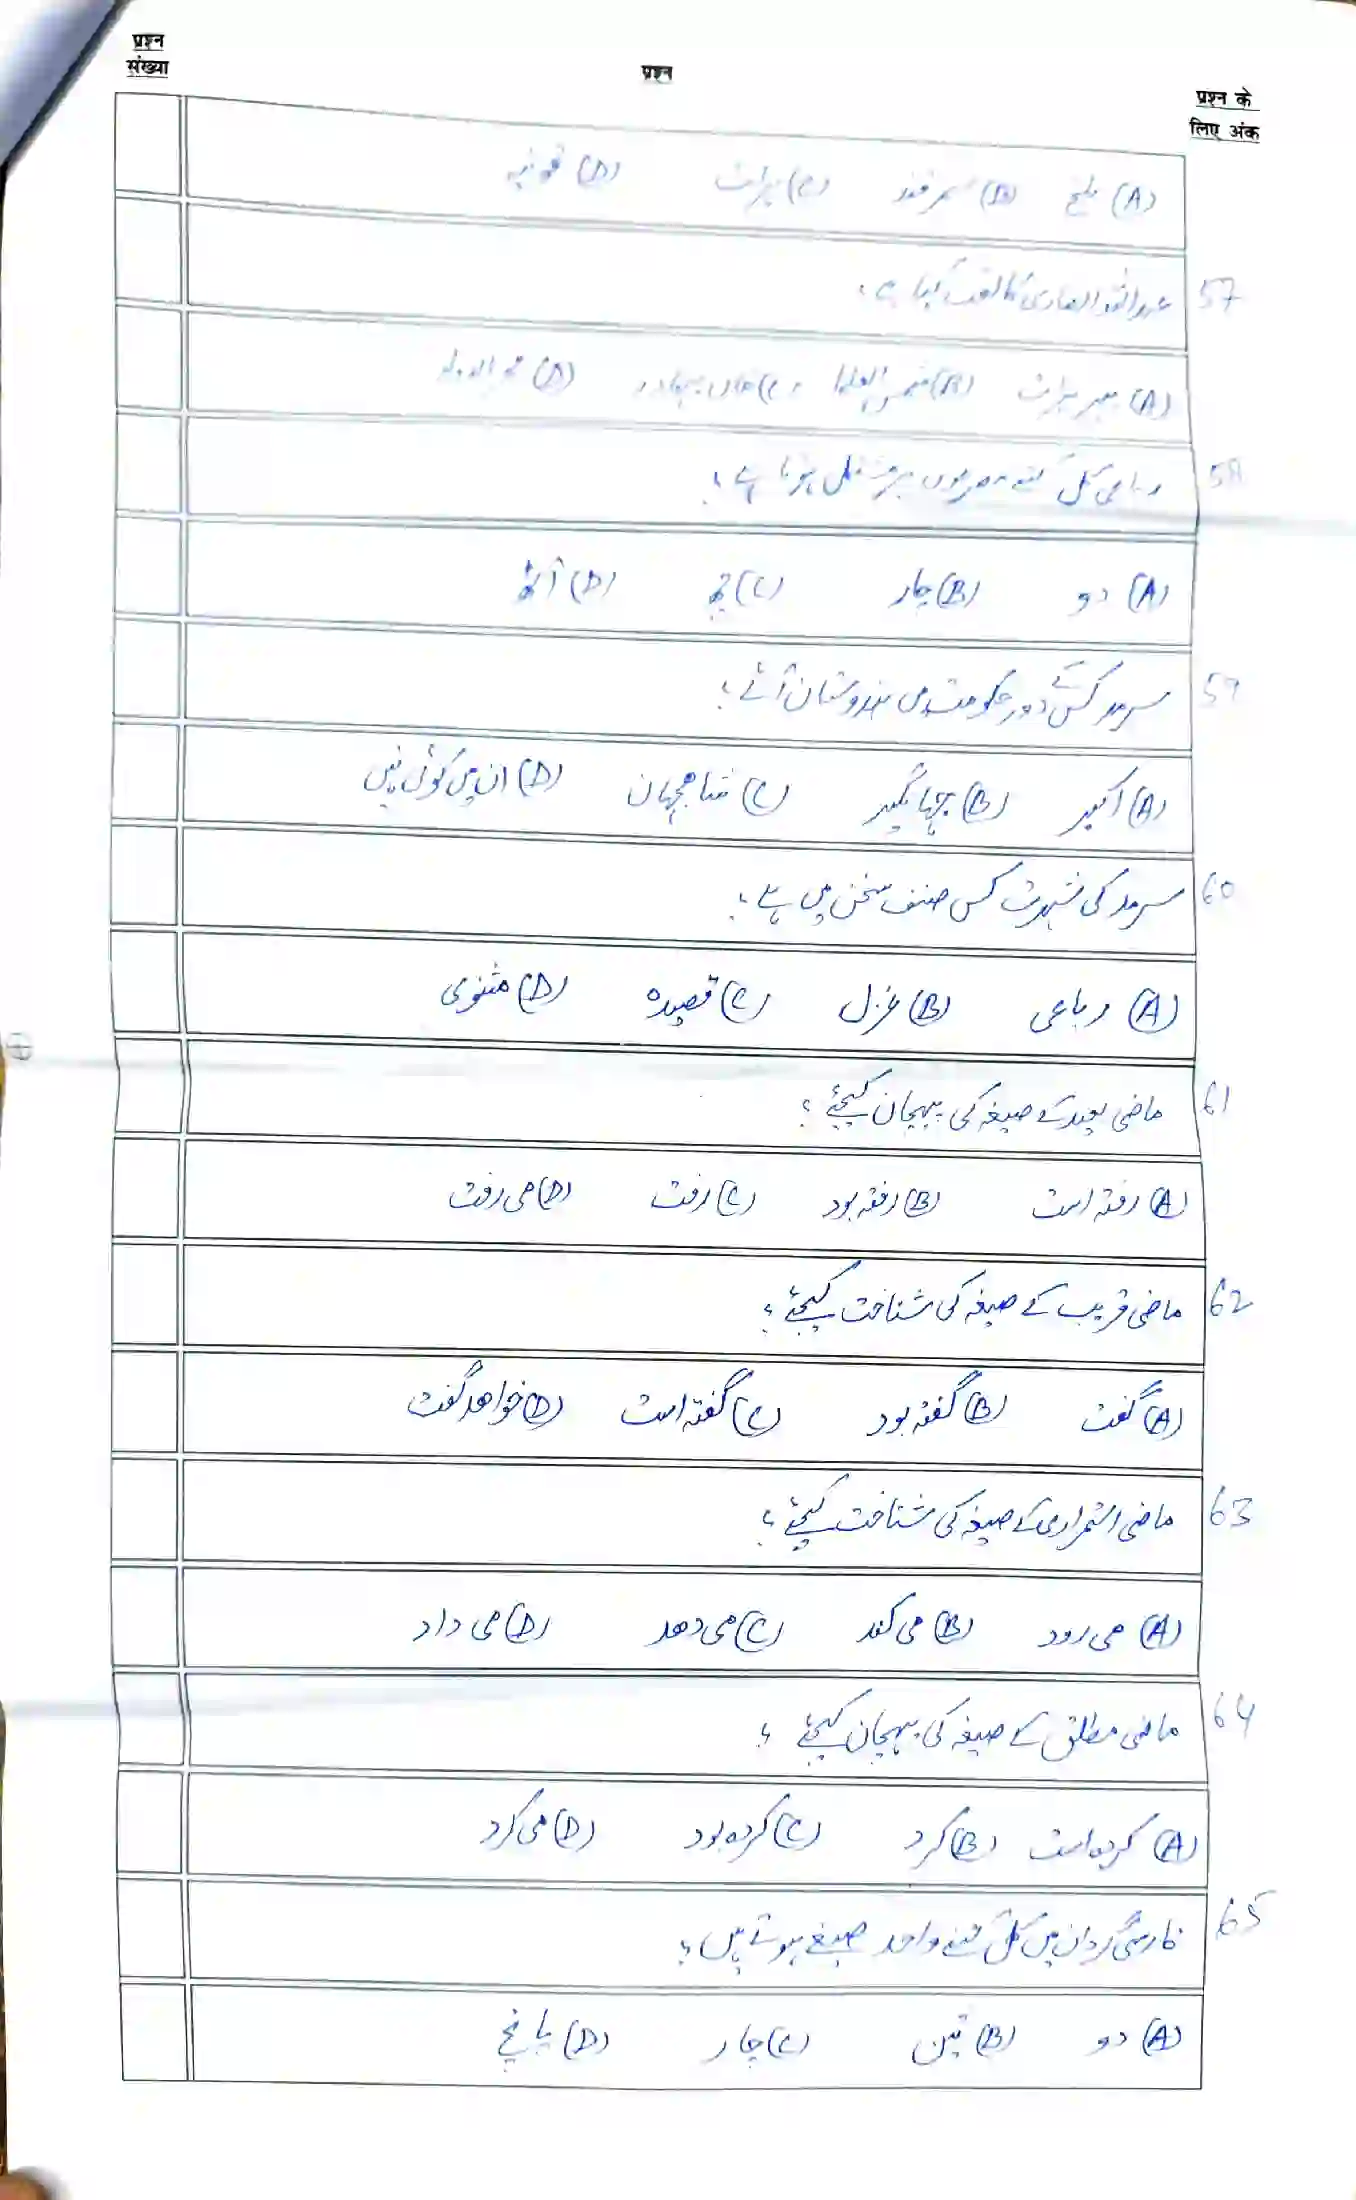 प्रश्न
संख्या
प्रश्न
प्रश्न के
लिए अंक
(A) بلخ (B) سمرقند (C) ہرات (D) قونیہ
57 عبداللہ انصاری کا لقب کیا ہے؟
(A) پیر ہرات (B) شمس العلما (C) خاں بہادر (D)
58 رباعی کل کتنے مصرعوں پر مشتمل ہوتا ہے؟
(A) دو (B) چار (C) چھ (D) آٹھ
59 سرمد کس کے دور حکومت میں ہندوستان آئے؟
(A) اکبر (B) جہانگیر (C) شاہجہان (D) ان میں کوئی نہیں
60 سرمد کی شہرت کس صنف سخن میں ہے؟
(A) رباعی (B) غزل (C) قصیدہ (D) مثنوی
61 ماضی بعید کے صیغہ کی پہچان کیجئے؟
(A) رفتہ است (B) رفتہ بود (C) رفت (D) می رفت
62 ماضی قریب کے صیغہ کی شناخت کیجئے؟
(A) گفت (B) گفتہ بود (C) گفتہ است (D) خواھد گفت
63 ماضی استمراری کے صیغہ کی شناخت کیجئے؟
(A) می رود (B) می کند (C) می دھد (D) می داد
64 ماضی مطلق کے صیغہ کی پہچان کیجئے؟
(A) کردہ است (B) کرد (C) کردہ بود (D) می کرد
65 فارسی گردان میں کل کتنے واحد صیغے ہوتے ہیں؟
(A) دو (B) تین (C) چار (D) پانچ